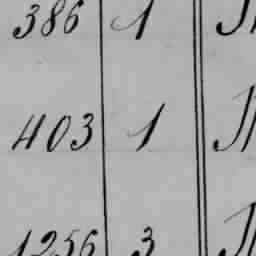 386 1
403 1
1256 3